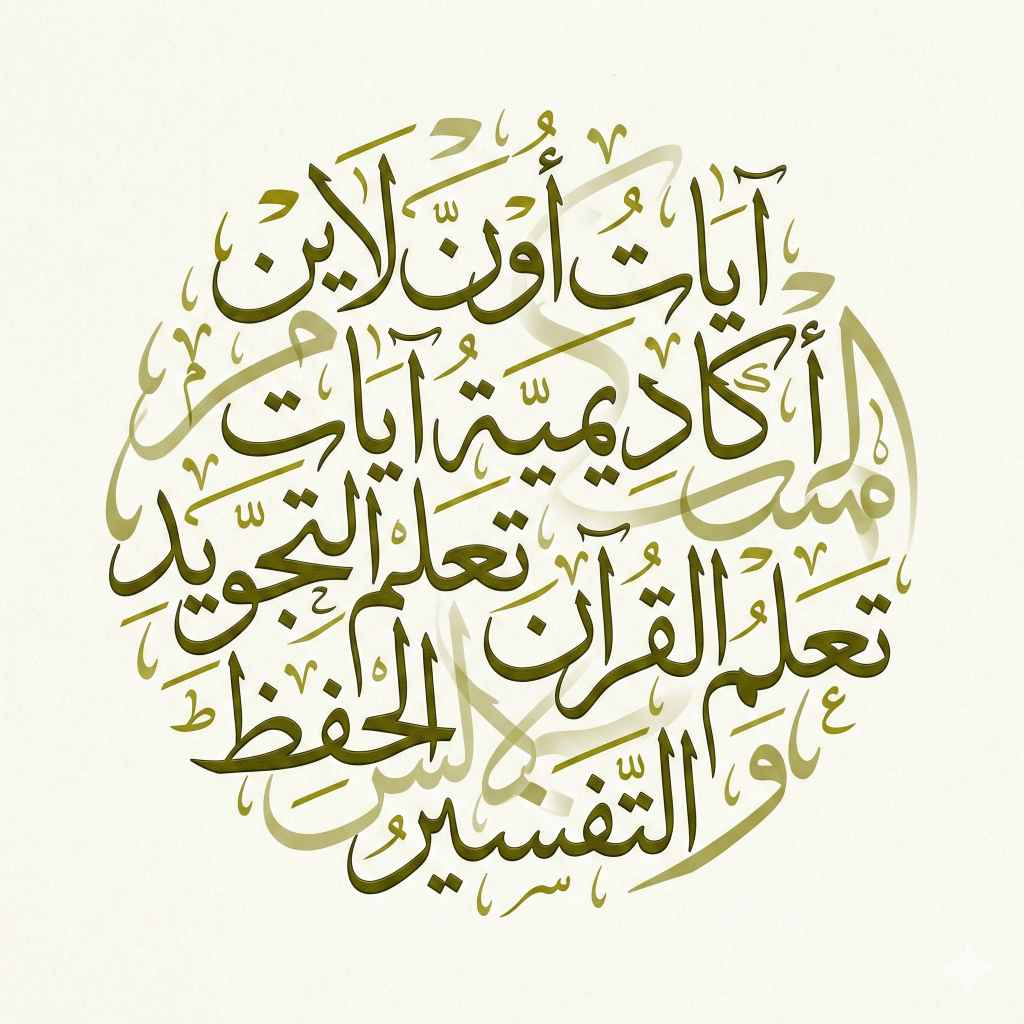 آيَاتُ أُونَّ لَاين
أَكَادِيمِيَّةُ آيَات
تَعلمُ القُرآن تَعلْم التَّجويد
الحْفِظ
التَّفسيرُ